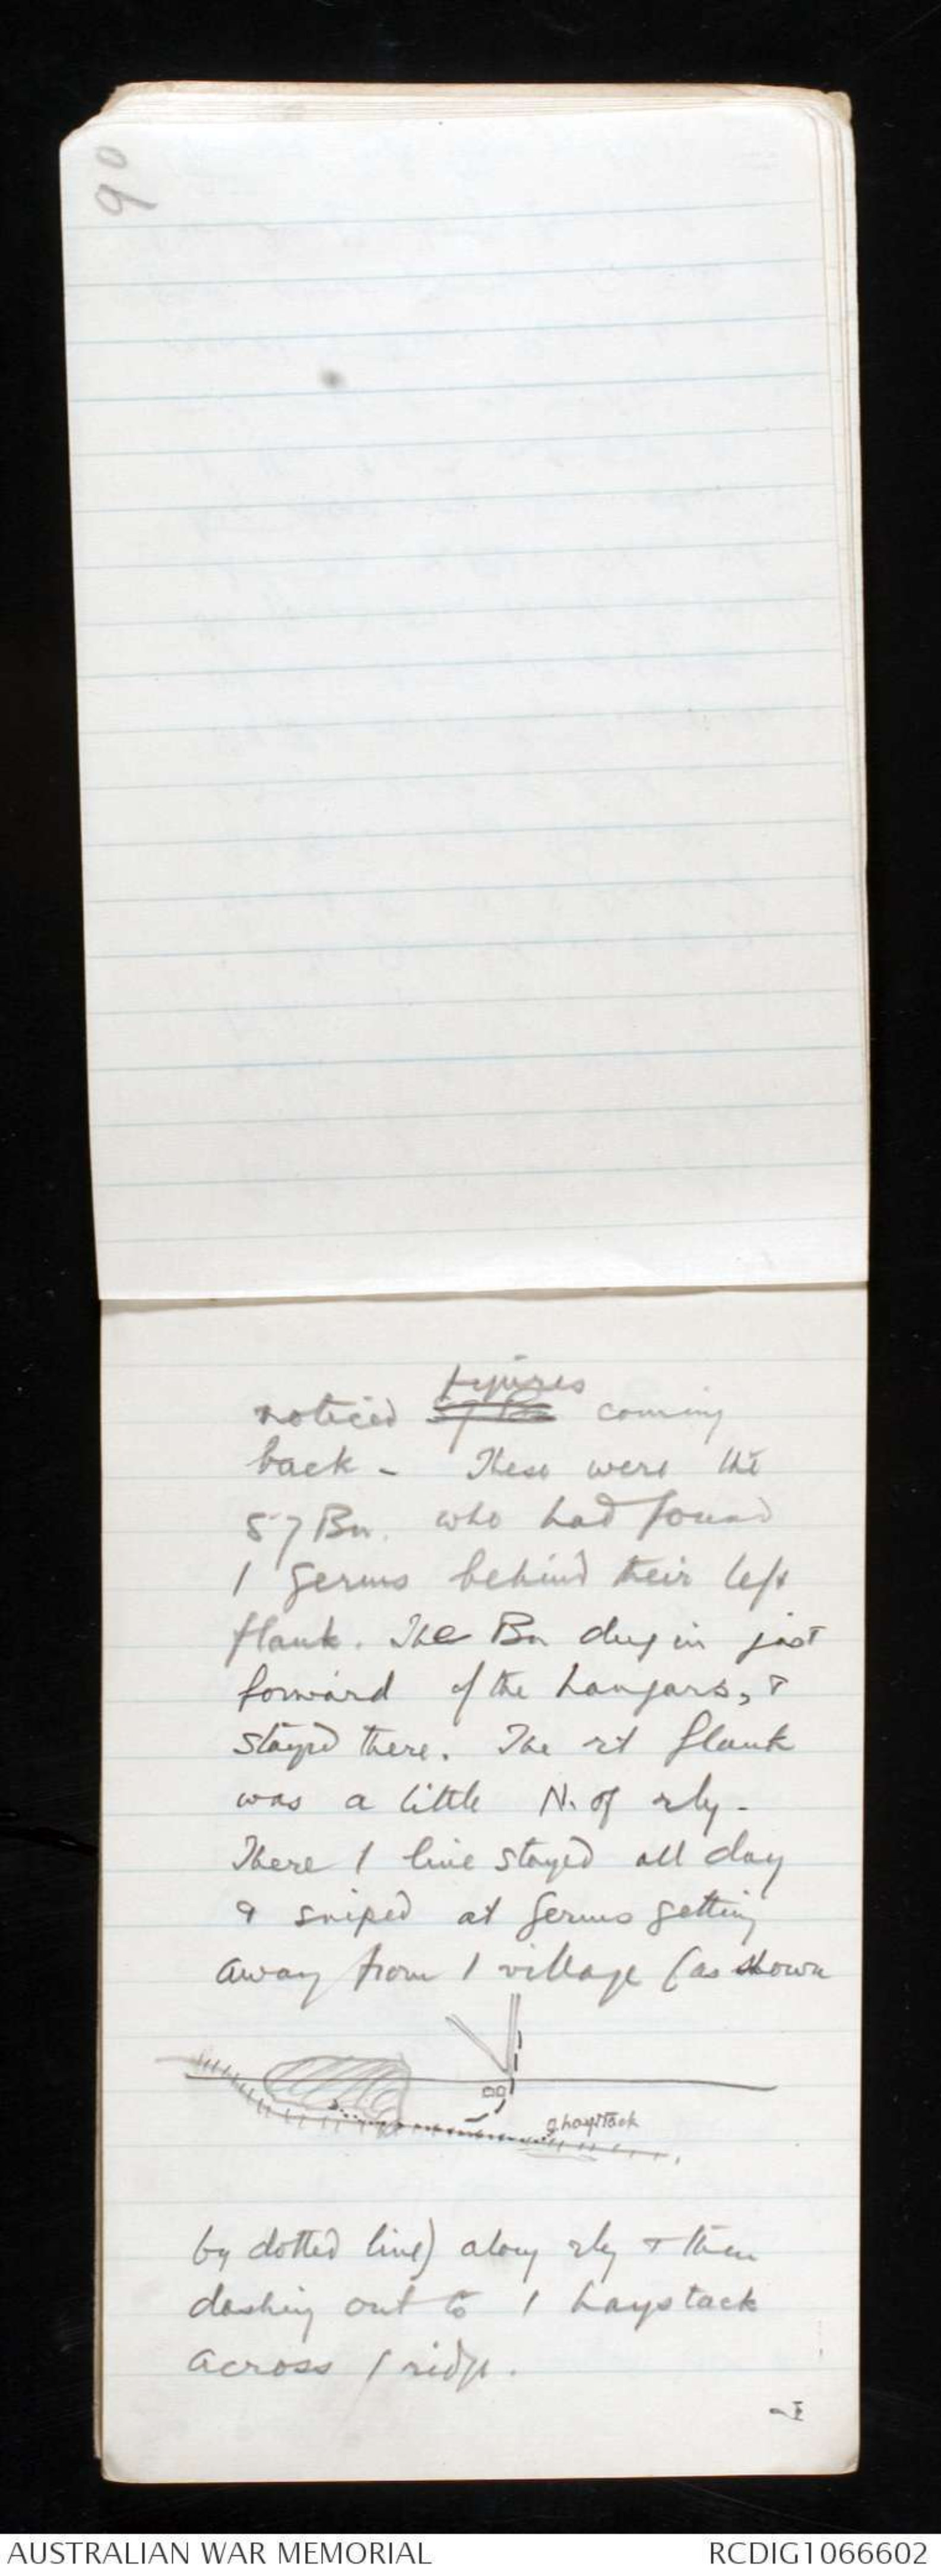 90
figures
noticed 57 Bn coming
back - These were the
57 Bn. who had found
/ Germs behind their left
flank. The Bn dug in just
forward of the hangars, &
stayed there. The rt flank
was a little N. of rly -
There / line stayed all day
& sniped at Germs getting
away from / village (as shown
haystack
by dotted line) along rly & then
dashing out to / haystack
across / ridge.
AUSTRALIAN WAR MEMORIAL
RCDIG1066602